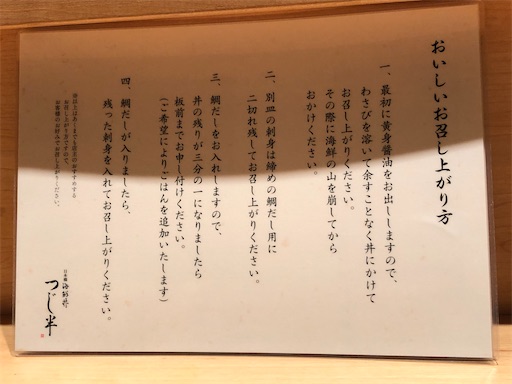 おいしいお召し上がり方
一、最初に黄身醤油をお出ししますので、
わさびを溶いて余すことなく丼にかけて
お召し上がりください。
その際に海鮮の山を崩してから
おかけください。
二、別皿の刺身は締めの鯛だし用に
二切れ残してお召し上がりください。
三、鯛だしをお入れしますので、
丼の残りが三分の一になりましたら
板前までお申し付けください。
(ご希望によりごはんを追加いたします)
四、鯛だしが入りましたら、
残った刺身を入れてお召し上がりください。
お召し上がり方ですので、
お客様のお好みでお召し上がりください。
日本橋 海鮮丼
つじ半